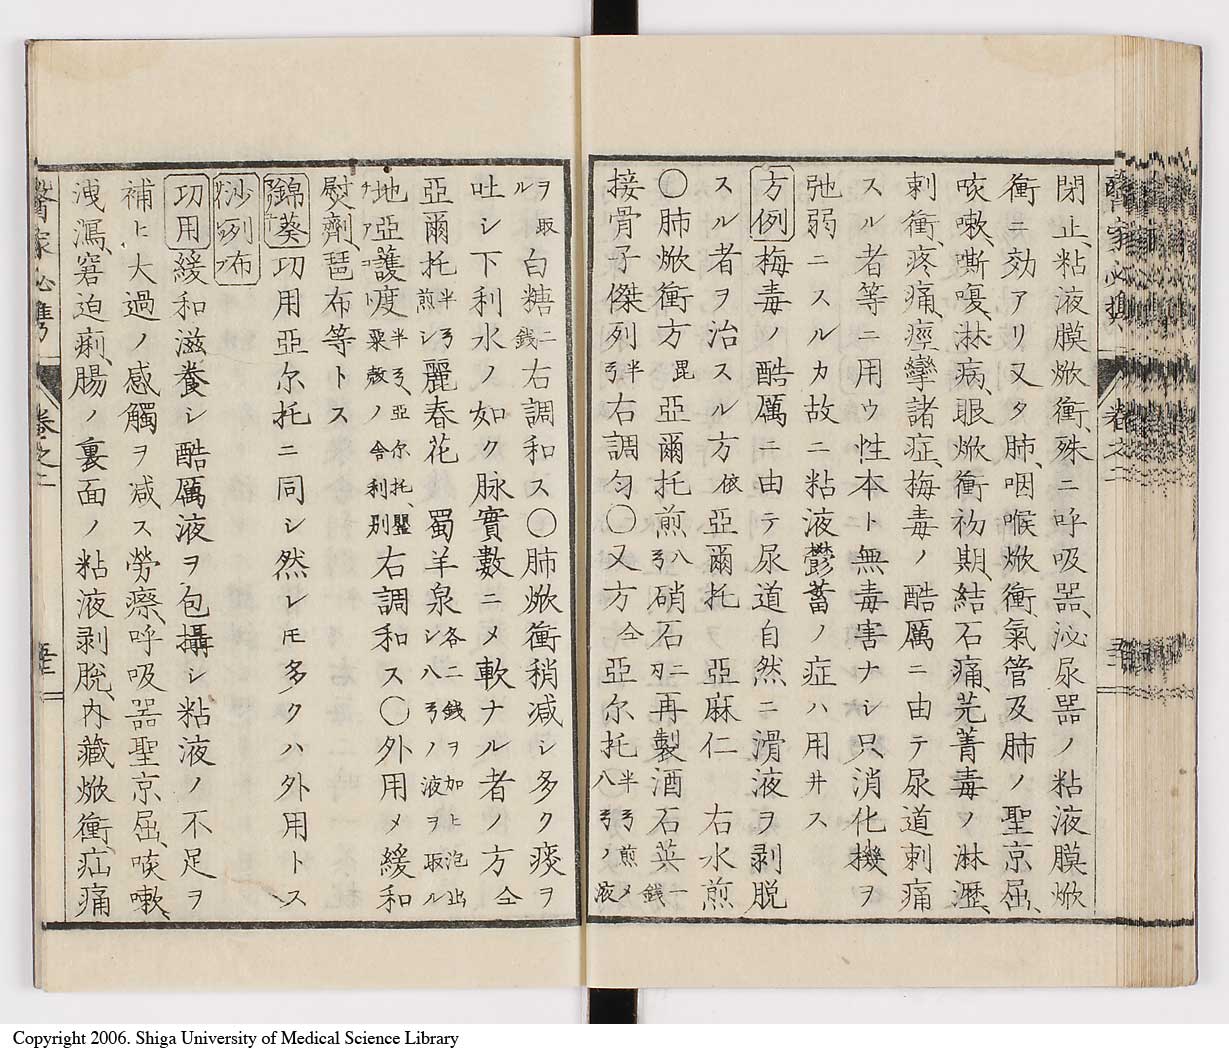 閉止、粘液膜焮衝、殊ニ呼吸器、泌尿器ノ粘液膜焮
衝ニ効アリ又タ肺、咽喉焮衝、氣管及肺ノ聖京屈、
咳嗽、嘶嗄、淋病、眼焮衝初期、結石痛、芫菁毒ノ淋瀝、
刺衝、疼痛、痙攣諸症、梅毒ノ酷厲ニ由テ尿道刺痛
スル者等ニ用ウ性本ト無毒害ナシ只消化機ヲ
弛弱ニスルカ故ニ粘液鬱蓄ノ症ハ用井ス
方例 梅毒ノ酷厲ニ由テ尿道自然ニ滑液ヲ剥脱
スル者ヲ治スル方 依 亞爾托 亞麻仁 右水煎
〇肺焮衝方 毘 亞爾托煎 八弓 硝石 二刄 再製酒石英 一錢
接骨子傑列 半弓 右調匀〇又方 仝 亞尔托 半弓煎メ八弓ノ液
ヲ取ル 白糖 二錢 右調和ス〇肺焮衝稍减シ多ク痰ヲ
吐シ下利水ノ如ク脉實數ニメ軟ナル者ノ方 仝
亞爾托 半弓煎シ 麗春花 蜀羊泉 各二錢ヲ加ヒ泡出シ八弓ノ液ヲ取ル
地亞護度 半弓 亞尔托、罌粟殼ノ舎利別 右調和ス〇外用メ緩和
熨劑、琶布等トス
錦葵 功用亞尔托ニ同シ然レ𪜈多クハ外用トス
沙列布
功用 緩和滋養シ酷厲液ヲ包攝シ粘液ノ不足ヲ
補ヒ大過ノ感觸ヲ减ス勞瘵、呼吸器聖京屈、咳嗽、
洩瀉、窘迫痢、腸ノ裏面ノ粘液剥脱、内藏焮衝、疝痛
醫家必携 卷之二
Copyright 2006. Shiga University of Medical Science Library